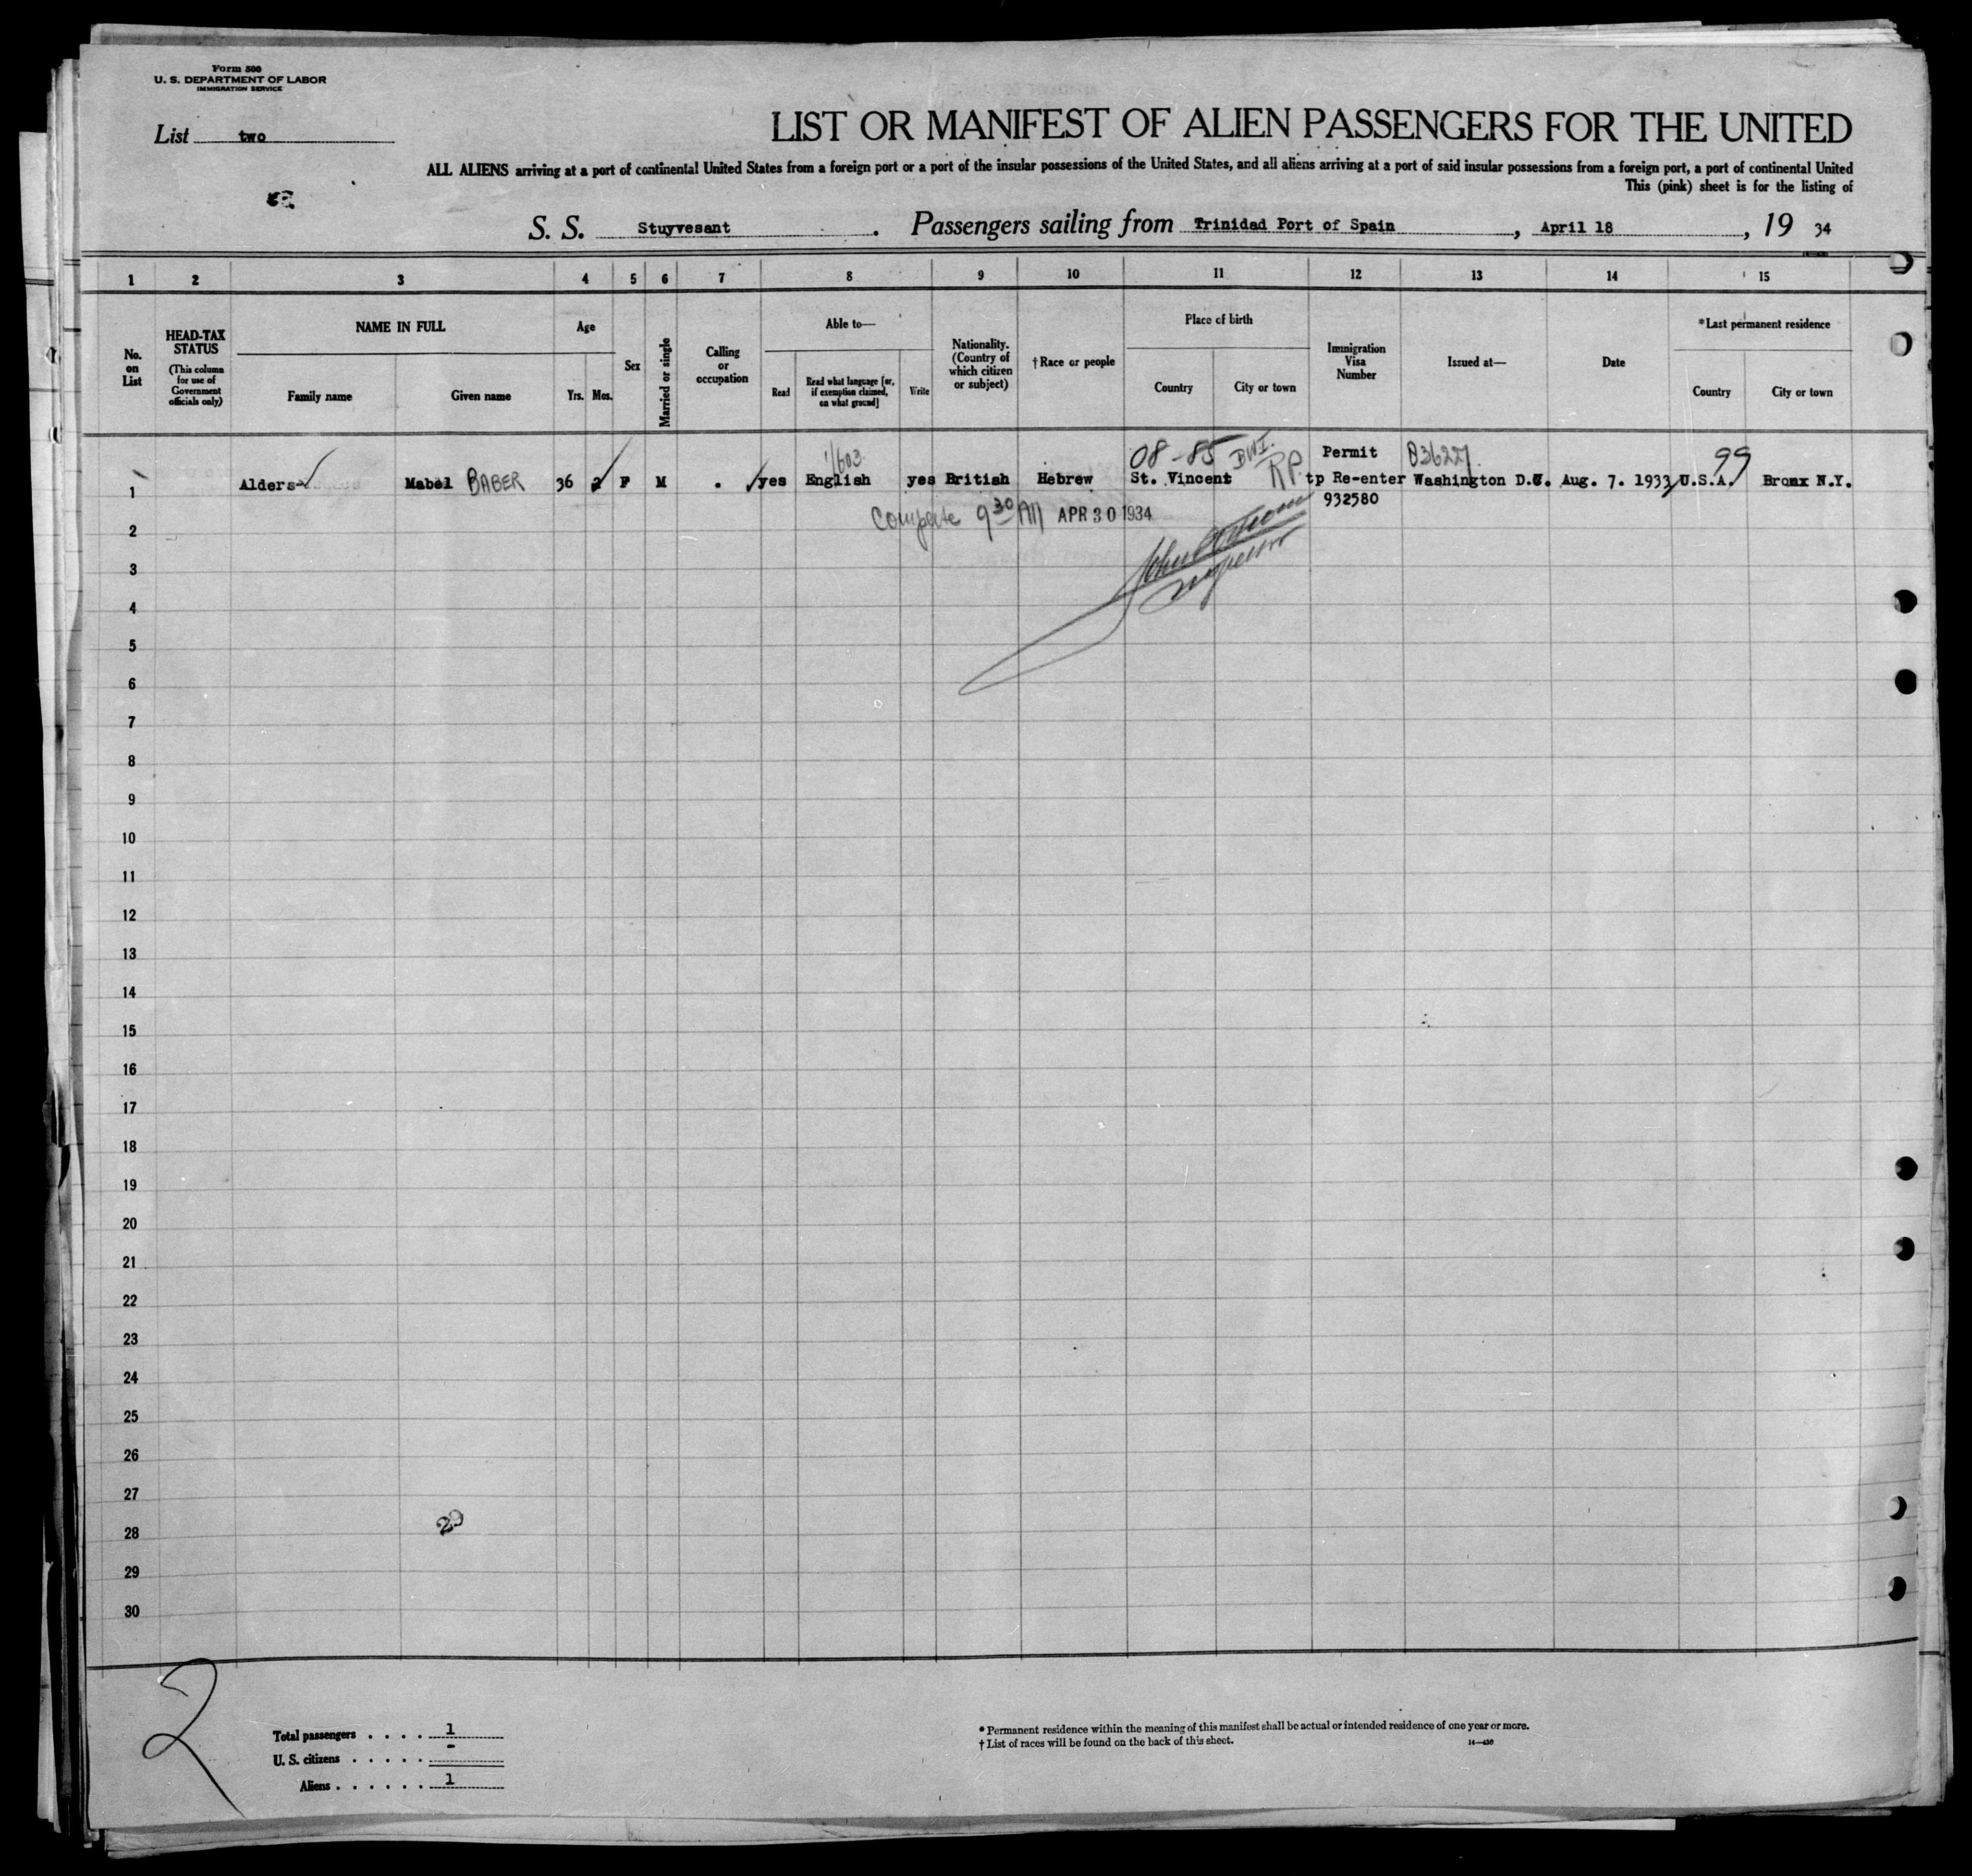 Form 500
U. S. DEPARTMENT OF LABOR
IMMIGRATION SERVICE
List two
LIST OR MANIFEST OF ALIEN PASSENGERS FOR THE UNITED
ALL ALIENS arriving at a port of continental United States from a foreign port or a port of the insular possessions of the United States, and all aliens arriving at a port of said insular possessions from a foreign port, a port of continental United
This (pink) sheet is for the listing of
S. S. Stuyvesant. Passengers sailing from Trinidad Port of Spain, April 18, 19 34
1 2 3 4 5 6 7 8 9 10 11 12 13 14 15
No. on List
HEAD-TAX STATUS
(This column for use of Government officials only)
NAME IN FULL
Family name
Given name
Age
Yrs. Mos.
Sex
Married or single
Calling or occupation
Able to—
Read
Read what language [or, if exemption claimed, on what ground]
Write
Nationality. (Country of which citizen or subject)
†Race or people
Place of birth
Country
City or town
Immigration Visa Number
Issued at—
Date
*Last permanent residence
Country
City or town
1/603 08-85 B.W.I. R.P. Permit 99
1 Alders Mabel BABER 36 2 F M . yes English yes British Hebrew St. Vincent tp Re-enter Washington D.C. Aug. 7. 1933 U.S.A. Bronx N.Y.
932580
9 30 AM APR 30 1934
2
3
Inspector
4
5
6
7
8
9
10
11
12
13
14
15
16
17
18
19
20
21
22
23
24
25
26
27
28
29
30
29
2
Total passengers . . . . 1
U. S. citizens . . . . . -
Aliens . . . . . . 1
* Permanent residence within the meaning of this manifest shall be actual or intended residence of one year or more.
† List of races will be found on the back of this sheet.
14—430